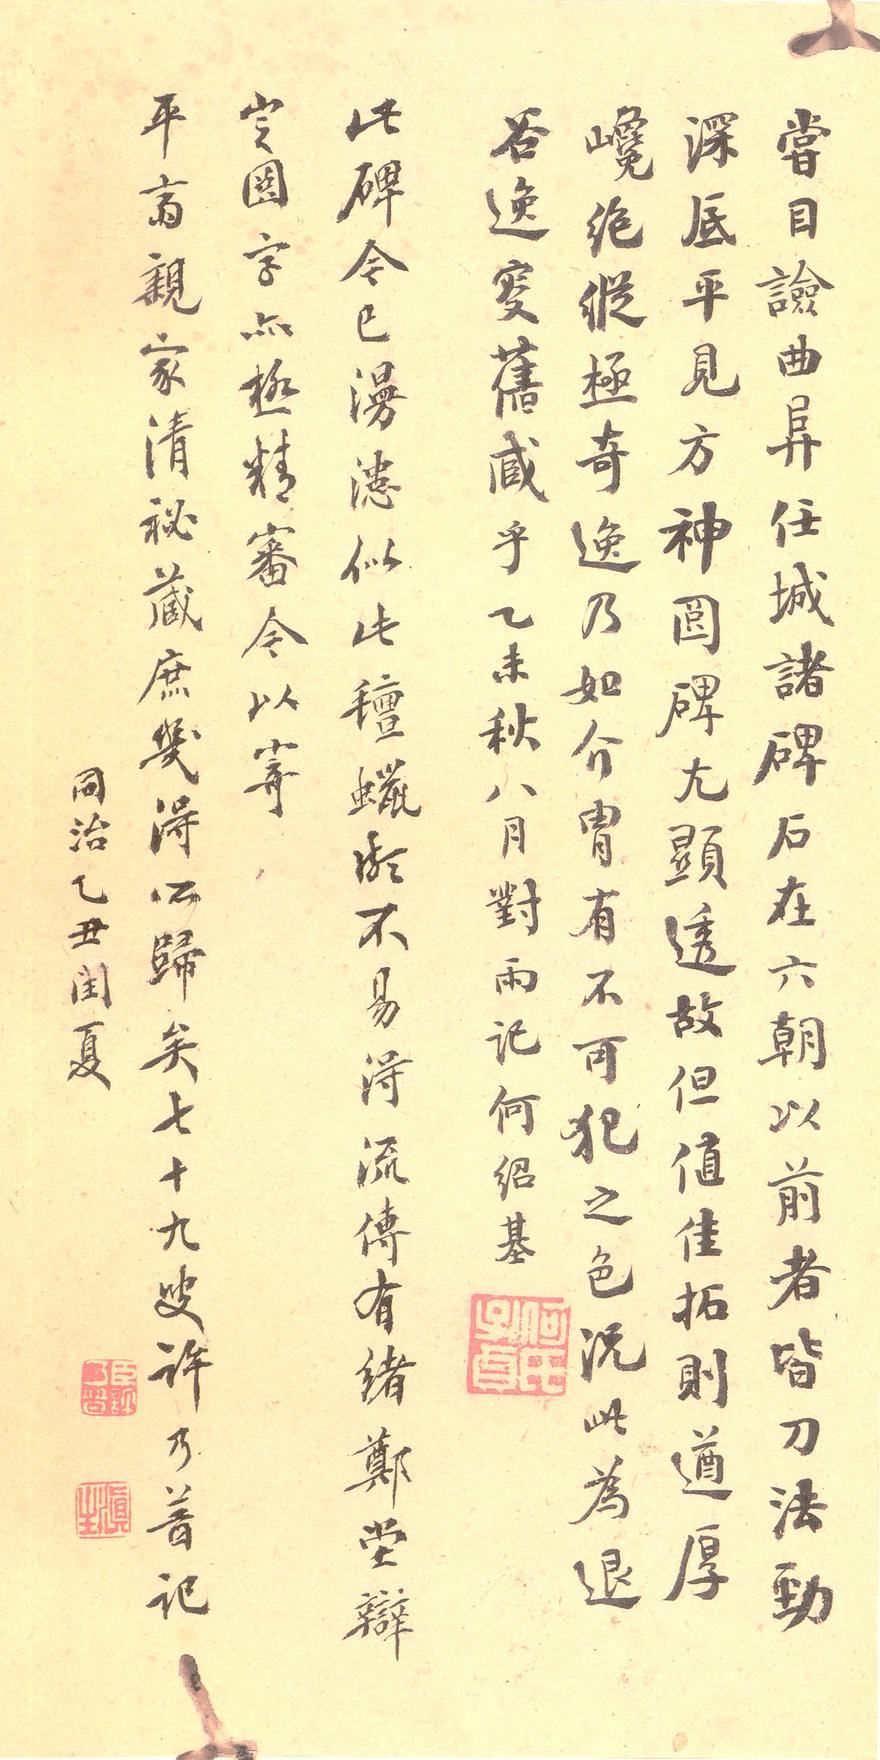 嘗目譣曲阜任城諸碑石在六朝以前者皆刀法勁
深底平見方神圓碑尤顯透故但值佳拓則遒厚
巉絶縱極奇逸乃如介胄有不可犯之色況此為退
谷逸叟舊藏乎乙未秋八月對雨記何紹基
何氏子貞
此碑今已漫漶似此氊蠟斷不易得流傳有緒鄭堂辯
定圈字亦極精審今以寄
平齋親家清祕藏庶幾得所歸矣七十九叟許乃普記
同治乙丑閏夏
臣許乃普
滇生